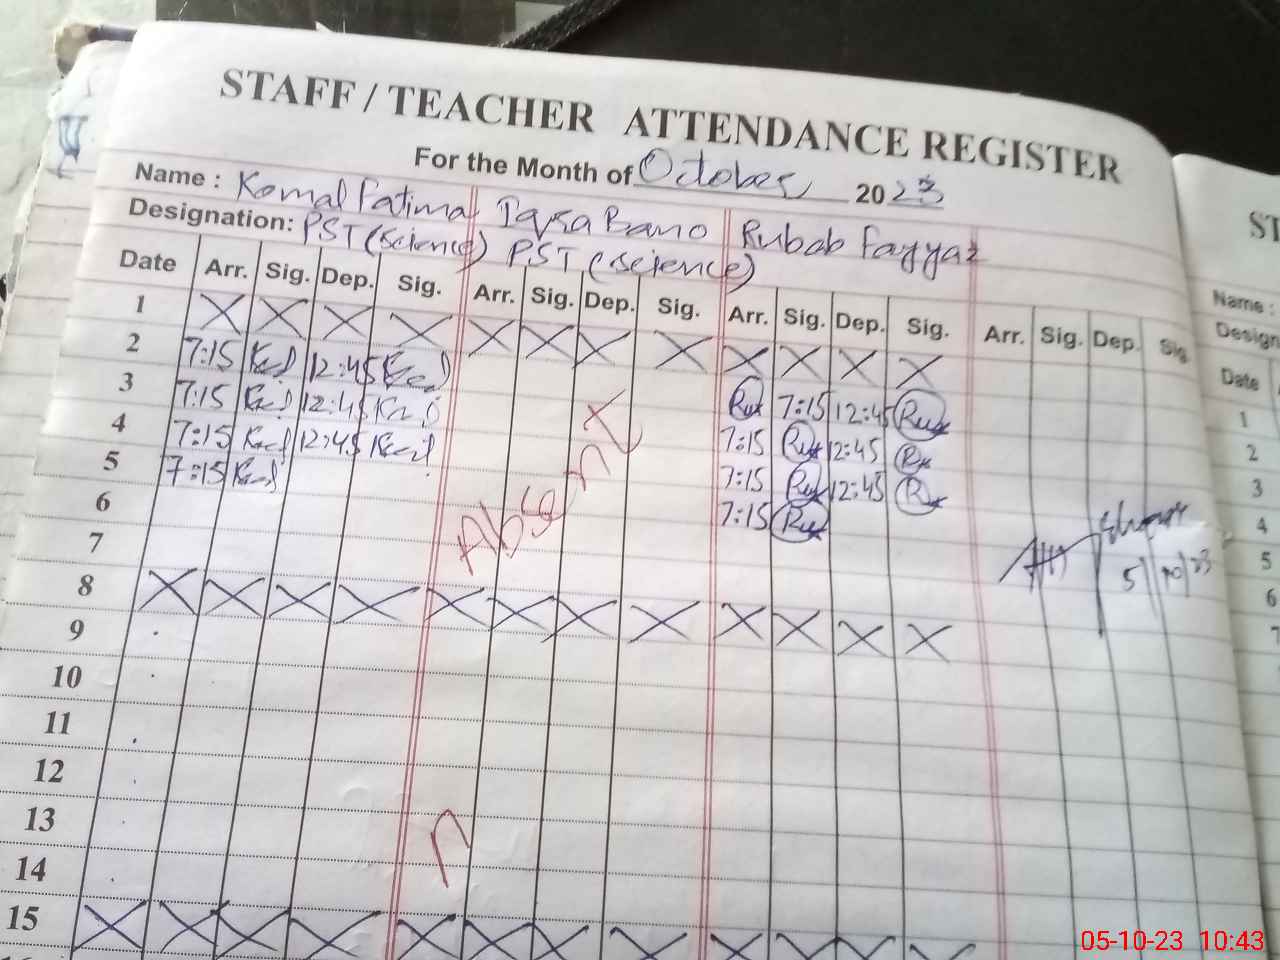 STAFF / TEACHER ATTENDANCE REGISTER
For the Month of October 2023
Name : Komal Fatima Iqsa Bano Rubab Fayyaz
Designation: PST (science) PST (science)
Date Arr. Sig. Dep. Sig. Arr. Sig. Dep. Sig. Arr. Sig. Dep. Sig. Arr. Sig. Dep. Sig.
1 X X X X X X X X X X X X
2 7:15 12:45 7:15 12:45
3 7:15 12:45 7:15 12:45
4 7:15 12:45 7:15 12:45
5 7:15 7:15
Absent
6
7
5/10/23
8 X X X X X X X X X X X X
9
10
11
12
13
n
14
15 X X X X X X X X X X X X
ST
Name :
Design
Date
1
2
3
4
5
6
7
05-10-23 10:43